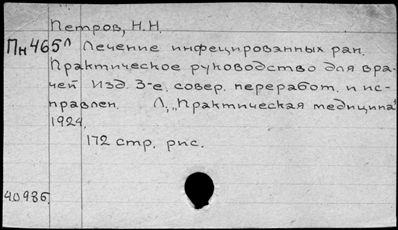 Петров, Н.Н.
Пн465л Лечение инфецированных ран.
Практическое руководство для вра-
чей Изд. 3-е, совер. переработ. и ис-
правлен. Л., "Практическая медицина"
1924.
172 стр. рис.
40986.